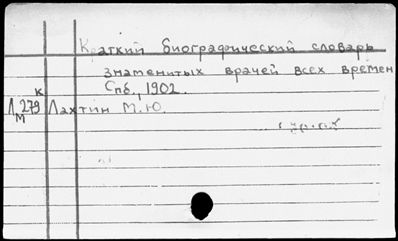 Краткий биографический словарь
знаменитых врачей всех времен
Спб., 1902.
К
Л 279 Лахтин М.Ю.
М